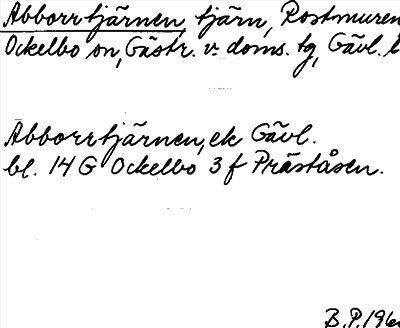 Abborrtjärnen, tjärn, Rostmuren
Ockelbo sn, Gästr. v. doms. tg, Gävl. l
Abborrtjärnen, ek Gävl.
bl. 14 G Ockelbo 3 f Präståsen.
B.P. 196